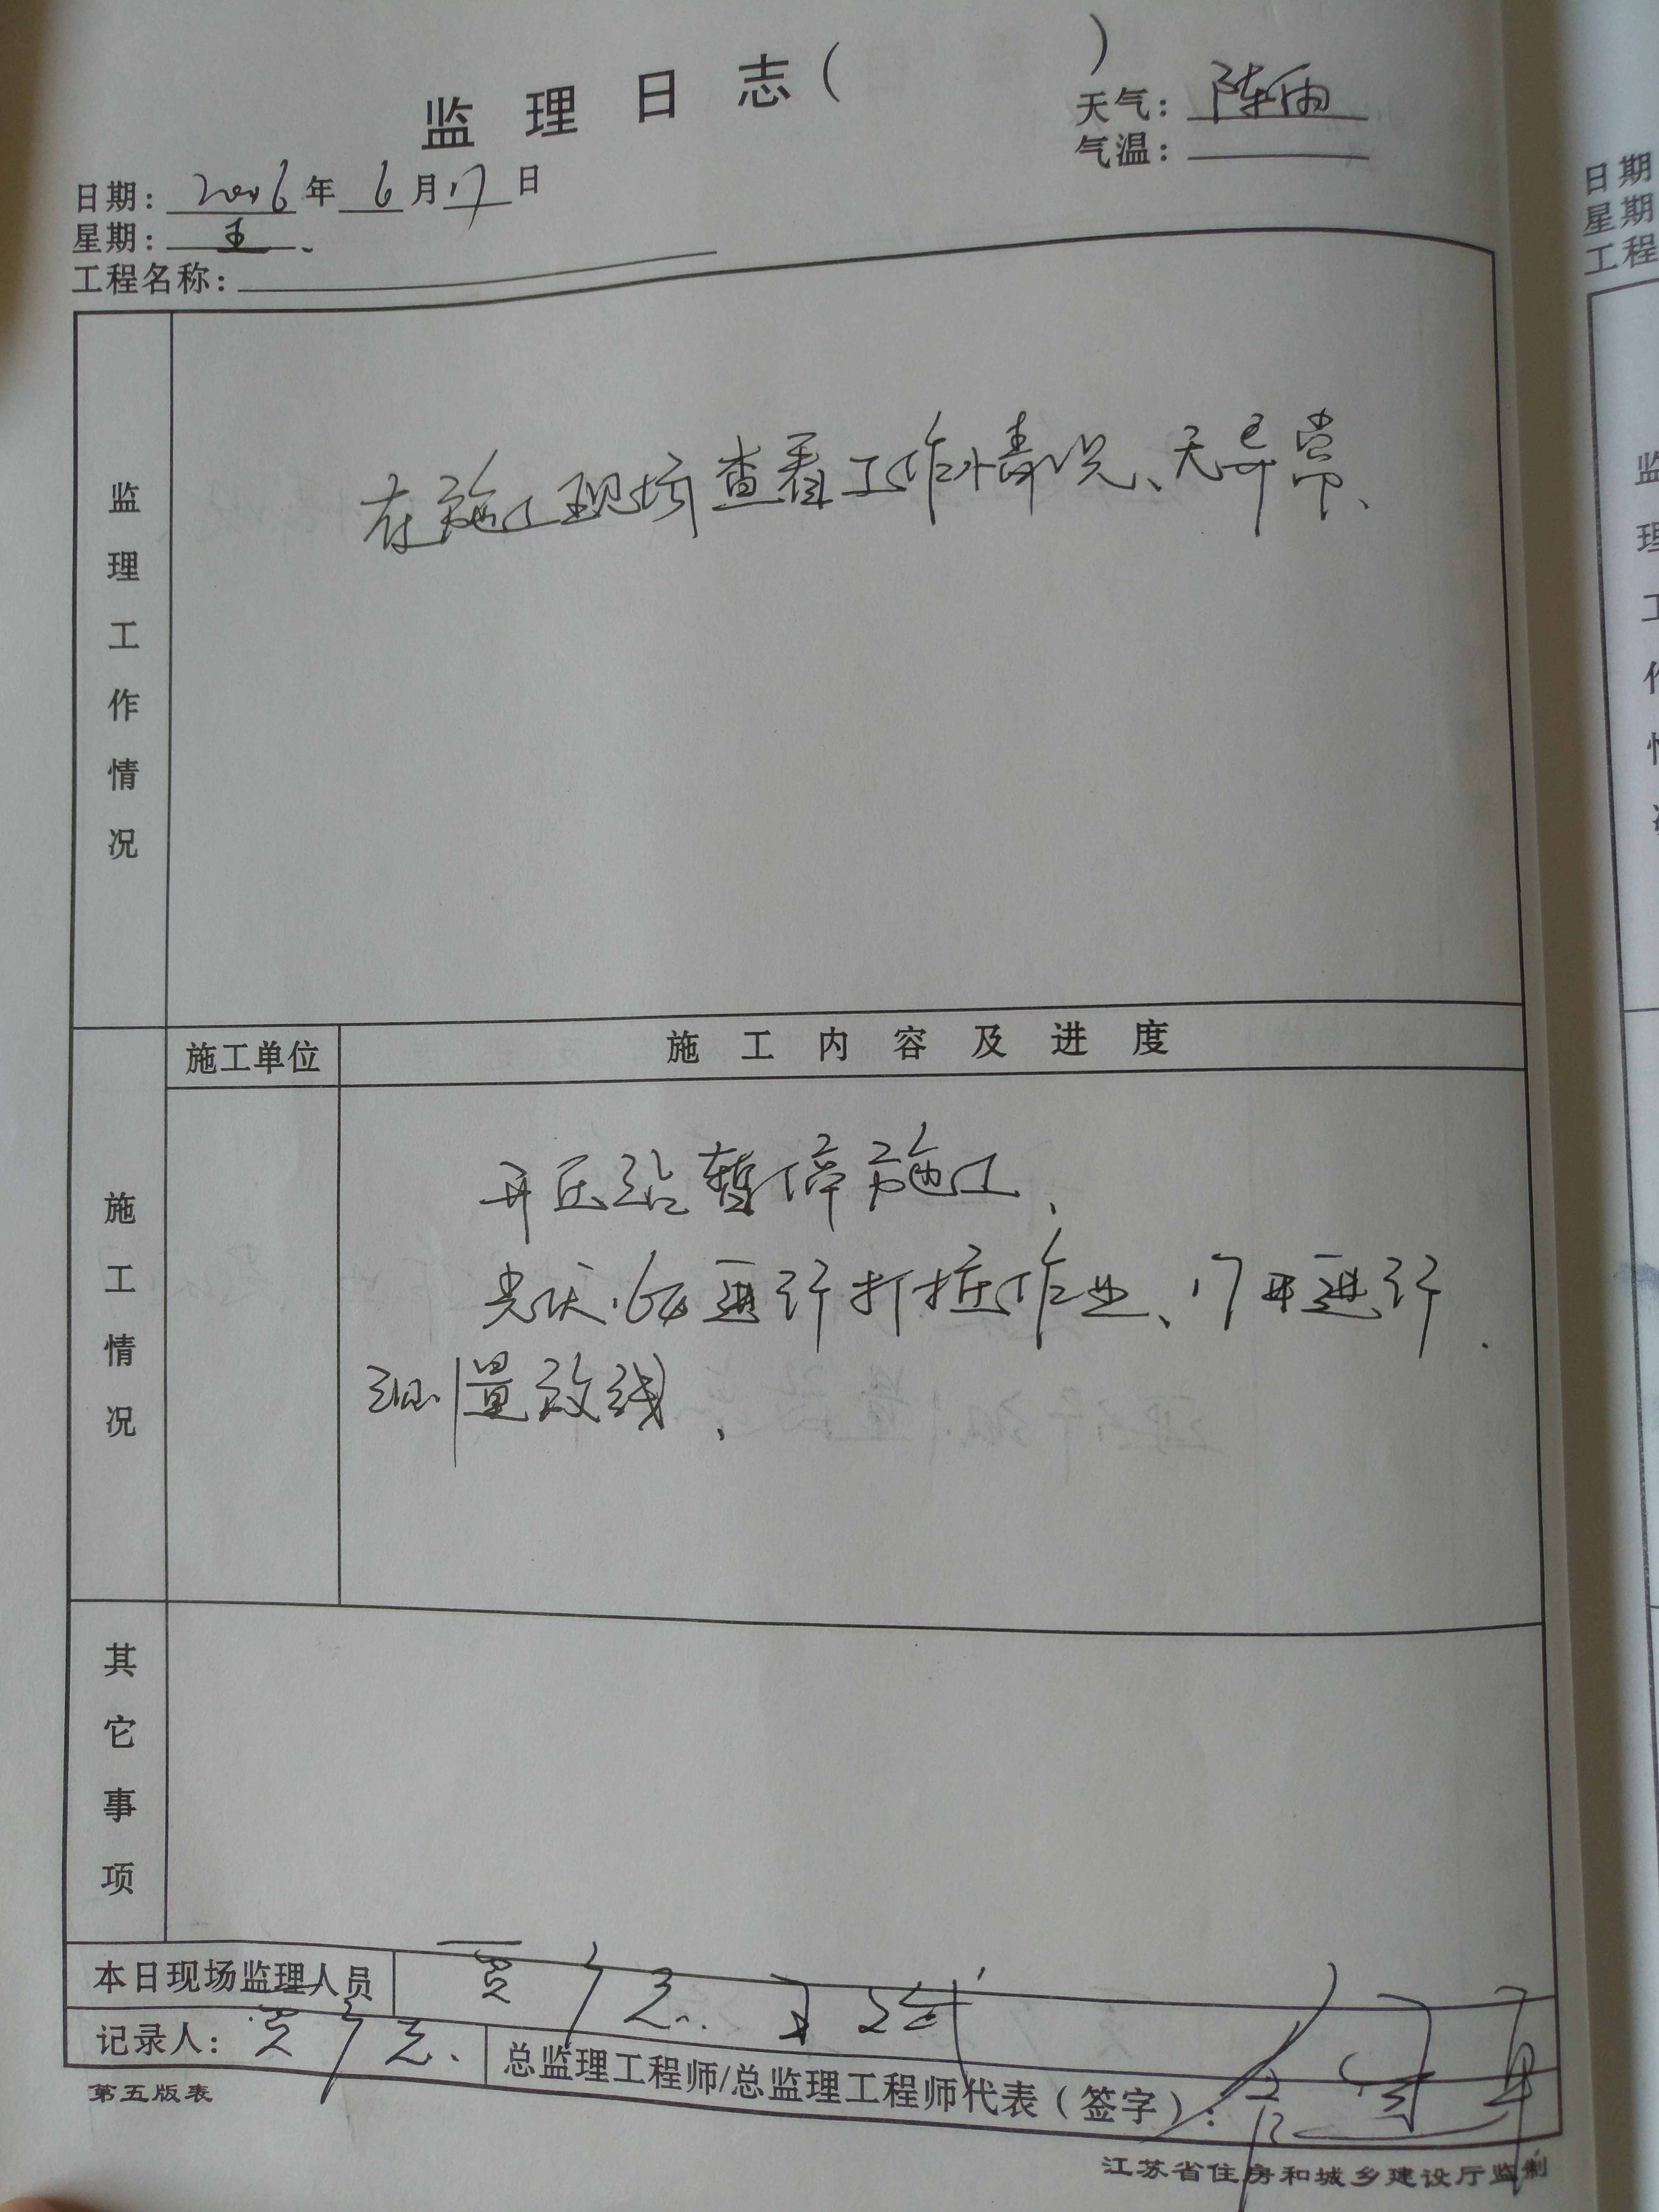 监理日志（ ）
天气：阵雨
气温：
日期：2016年6月17日
星期：五、
工程名称：
监理工作情况
在施工现场查看工作情况、无异常、
施工单位
施工内容及进度
施工情况
开压站暂停施工、
光伏16#进行打桩作业、17#进行
测量放线、
其它事项
本日现场监理人员
记录人：
总监理工程师/总监理工程师代表（签字）：
第五版表
江苏省住房和城乡建设厅监制
日期
星期
工程